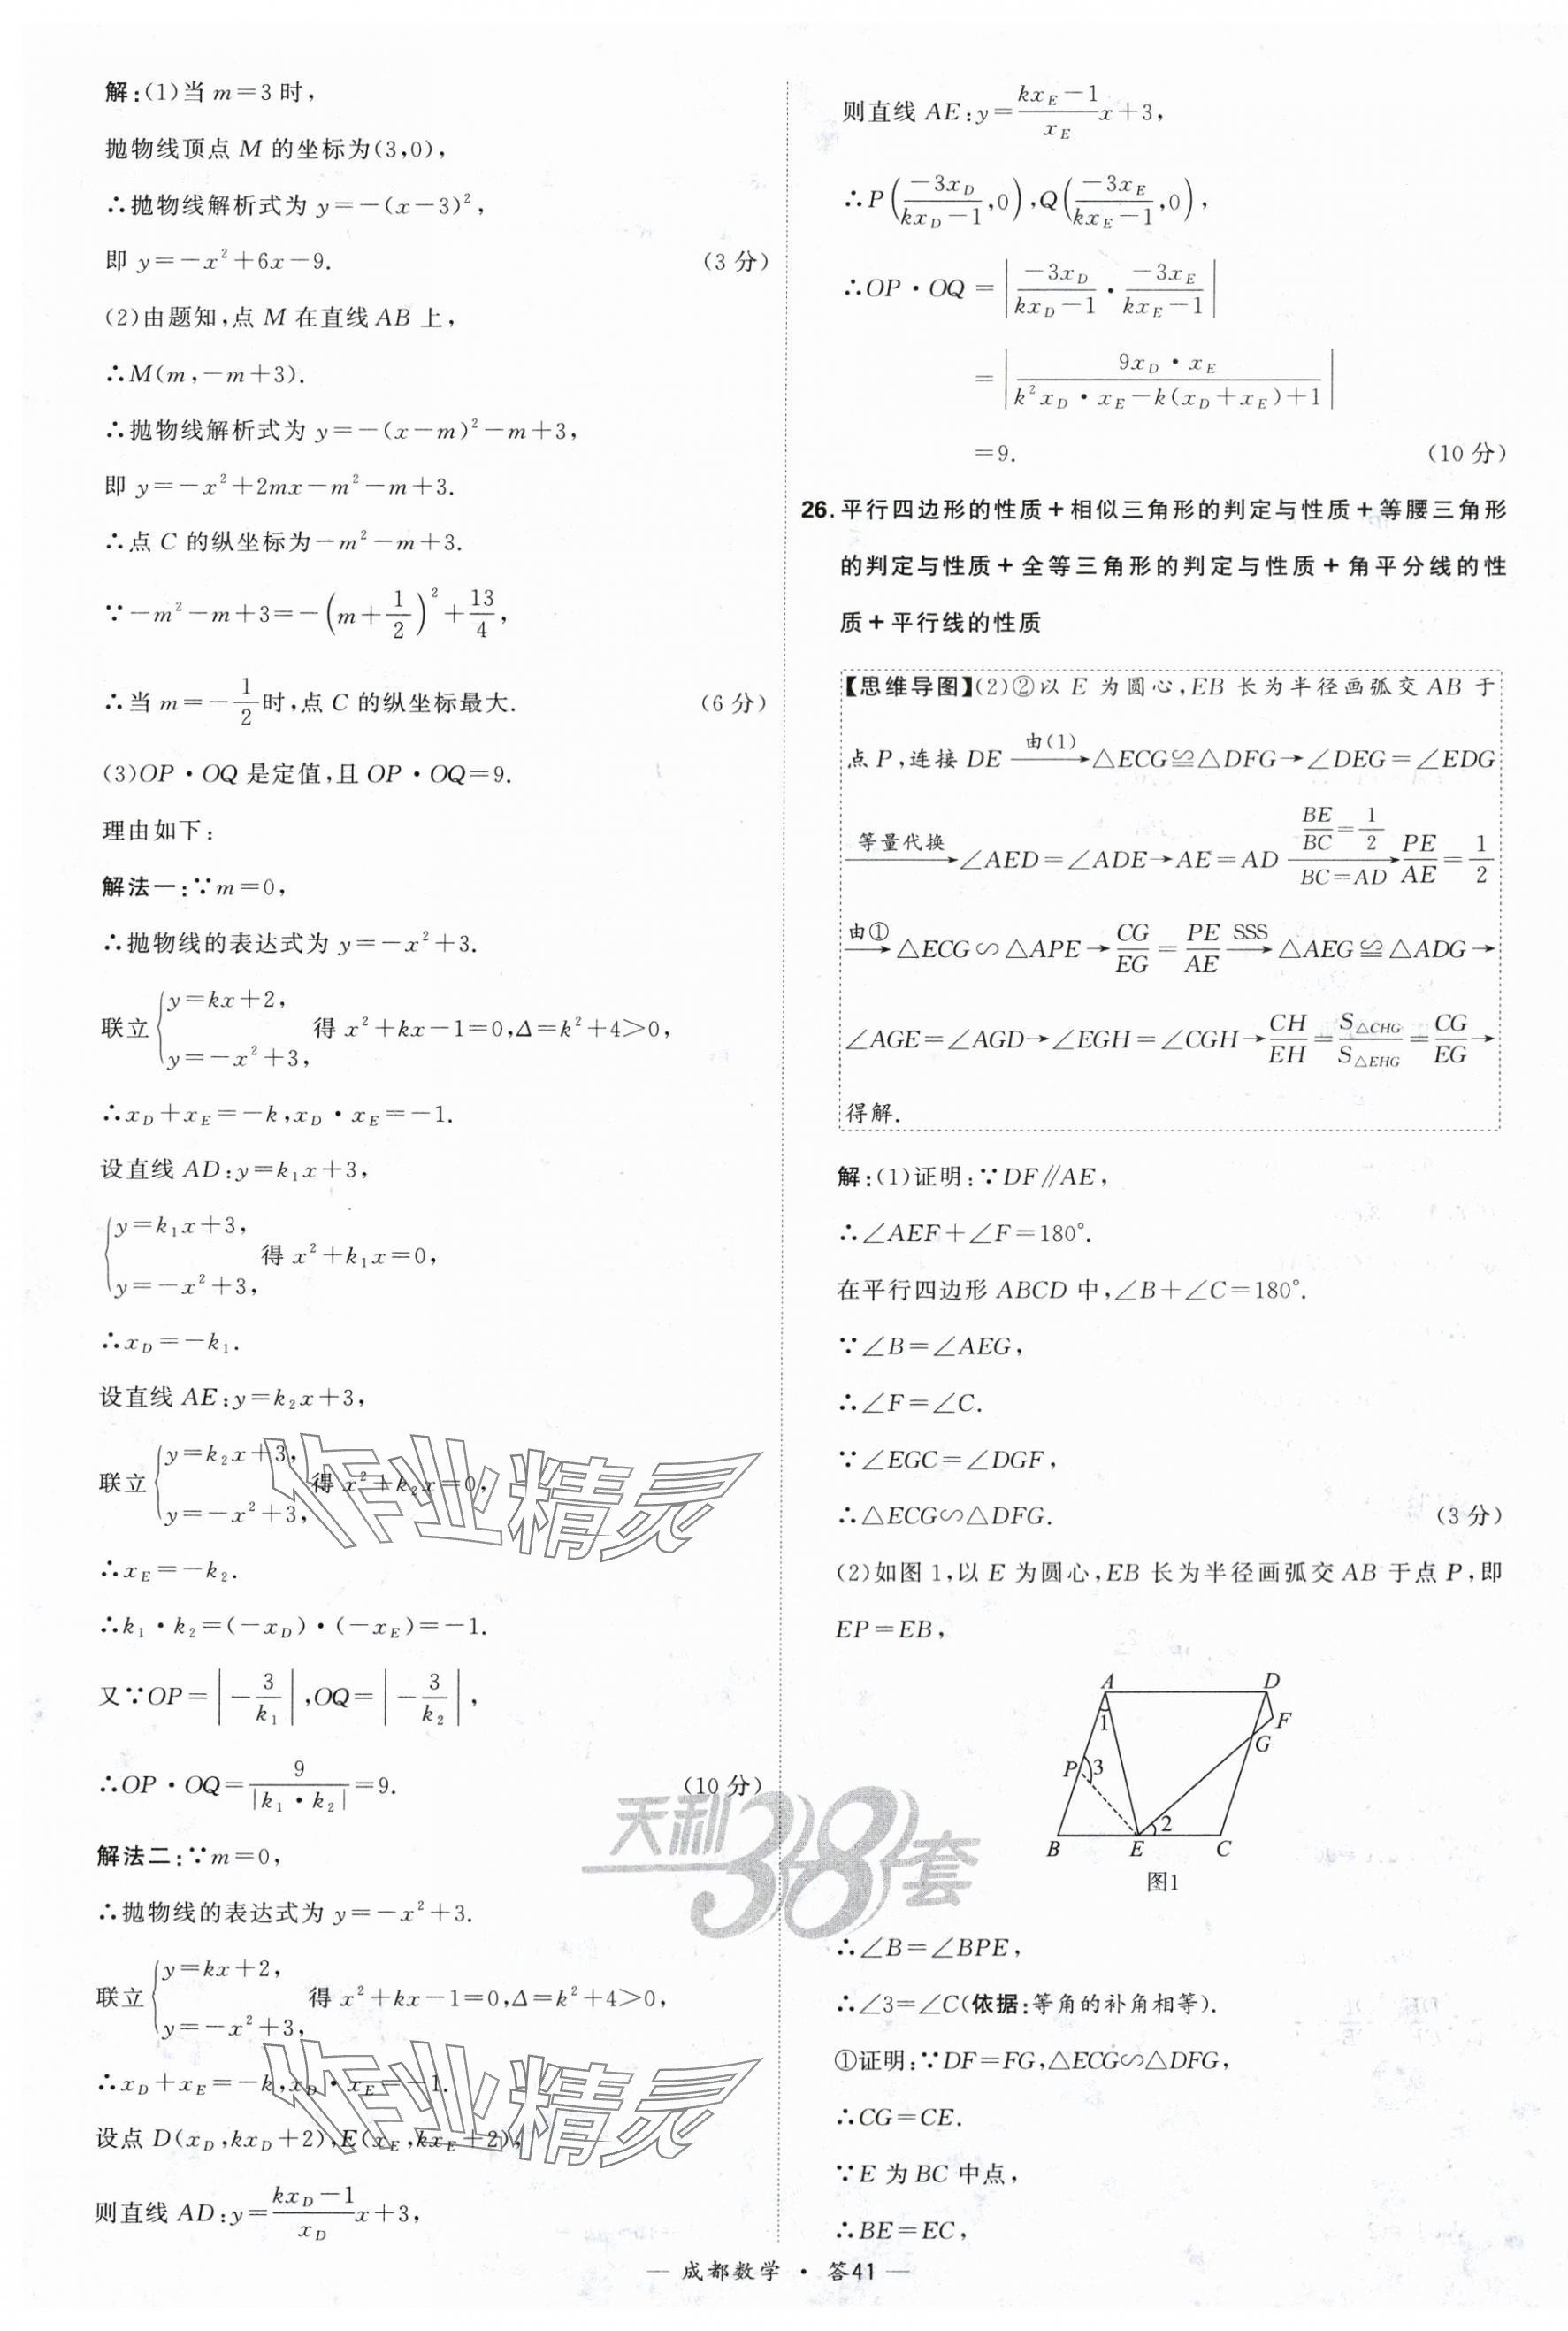 解:(1)当 m=3 时,
抛物线顶点 M 的坐标为(3,0),
∴抛物线解析式为 y=-(x-3)²,
即 y=-x²+6x-9. (3 分)
(2)由题知,点 M 在直线 AB 上,
∴M(m,-m+3).
∴抛物线解析式为 y=-(x-m)²-m+3,
即 y=-x²+2mx-m²-m+3.
∴点 C 的纵坐标为-m²-m+3.
∵-m²-m+3=-(m+1/2)²+13/4,
∴当 m=-1/2时,点 C 的纵坐标最大. (6 分)
(3)OP·OQ 是定值,且 OP·OQ=9.
理由如下:
解法一:∵m=0,
∴抛物线的表达式为 y=-x²+3.
联立{y=kx+2, y=-x²+3, 得 x²+kx-1=0,Δ=k²+4>0,
∴x_D+x_E=-k,x_D·x_E=-1.
设直线 AD:y=k₁x+3,
{y=k₁x+3, y=-x²+3, 得 x²+k₁x=0,
∴x_D=-k₁.
设直线 AE:y=k₂x+3,
联立{y=k₂x+3, y=-x²+3, 得 x²+k₂x=0,
∴x_E=-k₂.
∴k₁·k₂=(-x_D)·(-x_E)=-1.
又∵OP=|-3/k₁|,OQ=|-3/k₂|,
∴OP·OQ=9/|k₁·k₂|=9. (10 分)
解法二:∵m=0,
∴抛物线的表达式为 y=-x²+3.
联立{y=kx+2, y=-x²+3, 得 x²+kx-1=0,Δ=k²+4>0,
∴x_D+x_E=-k,x_D·x_E=-1.
设点 D(x_D,kx_D+2),E(x_E,kx_E+2),
则直线 AD:y=(kx_D-1)/x_D x+3,
则直线 AE:y=(kx_E-1)/x_E x+3,
∴P(-3x_D/(kx_D-1),0),Q(-3x_E/(kx_E-1),0),
∴OP·OQ=|-3x_D/(kx_D-1)·-3x_E/(kx_E-1)|
=|9x_D·x_E/(k²x_D·x_E-k(x_D+x_E)+1)|
=9. (10 分)
26.平行四边形的性质+相似三角形的判定与性质+等腰三角形
的判定与性质+全等三角形的判定与性质+角平分线的性
质+平行线的性质
【思维导图】(2)②以 E 为圆心,EB 长为半径画弧交 AB 于
点 P,连接 DE 由(1)→△ECG≌△DFG→∠DEG=∠EDG
等量代换→∠AED=∠ADE→AE=AD BE/BC=1/2 BC=AD→PE/AE=1/2
由①→△ECG∽△APE→CG/EG=PE/AE SSS→△AEG≌△ADG→
∠AGE=∠AGD→∠EGH=∠CGH→CH/EH=S△CHG/S△EHG=CG/EG→
得解.
解:(1)证明:∵DF∥AE,
∴∠AEF+∠F=180°.
在平行四边形 ABCD 中,∠B+∠C=180°.
∵∠B=∠AEG,
∴∠F=∠C.
∵∠EGC=∠DGF,
∴△ECG∽△DFG. (3 分)
(2)如图 1,以 E 为圆心,EB 长为半径画弧交 AB 于点 P,即
EP=EB,
A D
1 F
G
P 3
2
B E C
图1
∴∠B=∠BPE,
∴∠3=∠C(依据:等角的补角相等).
①证明:∵DF=FG,△ECG∽△DFG,
∴CG=CE.
∵E 为 BC 中点,
∴BE=EC,
— 成都数学 · 答41 —
作业精灵
天利38套
作业精灵